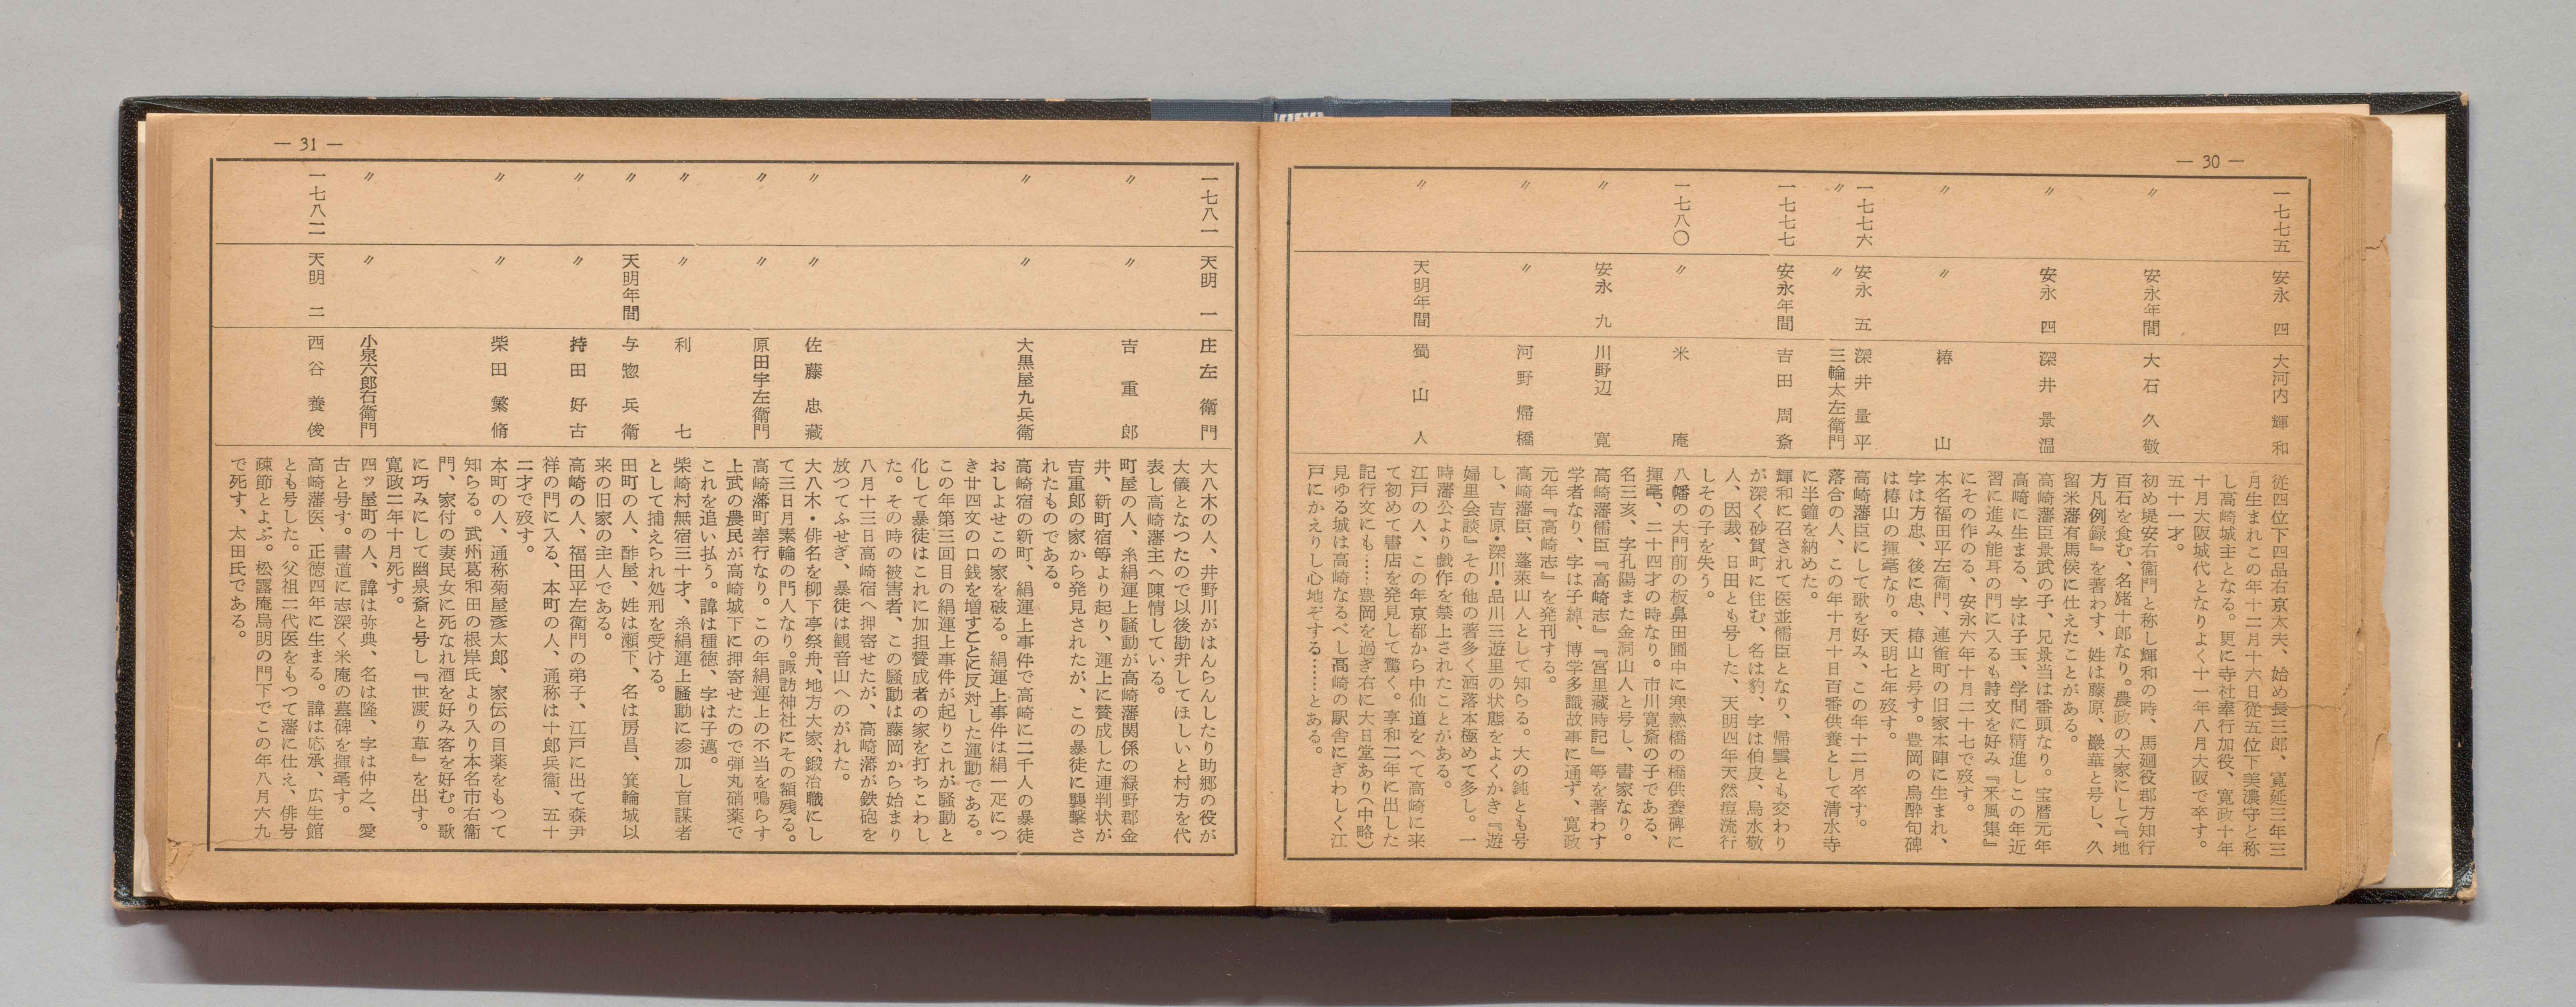 — 30 —
一七七五 安永四 大河内輝和 従四位下四品右京太夫、始め長三郎、寛延三年三
月生まれこの年十二月十六日従五位下美濃守と称
し高崎城主となる。更に寺社奉行加役、寛政十年
十月大阪城代となりよく十一年八月大阪で卒す。
五十一才。
〃 安永年間 大石久敬 初め堤安右衛門と称し輝和の時、馬廻役郡方知行
百石を食む、名猪十郎なり。農政の大家にして『地
方凡例録』を著わす、姓は藤原、巌華と号し、久
留米藩有馬侯に仕えたことがある。
〃 安永四 深井景温 高崎藩臣景武の子、兄景当は番頭なり。宝暦元年
高崎に生まる、字は子玉、学問に精進しこの年近
習に進み能耳の門に入るも詩文を好み『釆風集』
にその作のる、安永六年十月二十七で歿す。
〃 〃 椿山 本名福田平左衛門、連雀町の旧家本陣に生まれ、
字は方忠、後に忠、椿山と号す。豊岡の鳥酔句碑
は椿山の揮毫なり。天明七年歿す。
一七七六 安永五 深井量平 高崎藩臣にして歌を好み、この年十二月卒す。
〃 〃 三輪太左衛門 落合の人、この年十月十日百番供養として清水寺
に半鐘を納めた。
一七七七 安永年間 吉田周斎 輝和に召されて医並儒臣となり、帰雲とも交わり
が深く砂賀町に住む、名は豹、字は伯皮、烏水敬
人、因裁、日田とも号した、天明四年天然痘流行
しその子を失う。
一七八〇 〃 米庵 八幡の大門前の板鼻田圃中に寒熱橋の橋供養碑に
揮毫、二十四才の時なり。市川寛斎の子である、
名三亥、字孔陽また金洞山人と号し、書家なり。
〃 安永九 川野辺寛 高崎藩儒臣『高崎志』『宮里蔵時記』等を著わす
学者なり、字は子綽、博学多識故事に通ず、寛政
元年『高崎志』を発刊する。
〃 〃 河野帰橋 高崎藩臣、蓬萊山人として知らる。大の鈍とも号
し、吉原・深川・品川三遊里の状態をよくかき『遊
婦里会談』その他の著多く洒落本極めて多し。一
時藩公より戯作を禁止されたことがある。
〃 天明年間 蜀山人 江戸の人、この年京都から中仙道をへて高崎に来
て初めて書店を発見して驚く。享和二年に出した
記行文にも……豊岡を過ぎ右に大日堂あり(中略)
見ゆる城は高崎なるべし高崎の駅舎にぎわしく江
戸にかえりし心地ぞする……とある。
— 31 —
一七八一 天明一 庄左衛門 大八木の人、井野川がはんらんしたり助郷の役が
大儀となつたので以後勘弁してほしいと村方を代
表し高崎藩主へ陳情している。
〃 〃 吉重郎 町屋の人、糸絹運上騒動が高崎藩関係の緑野郡金
井、新町宿等より起り、運上に賛成した連判状が
吉重郎の家から発見されたが、この暴徒に襲撃さ
れたものである。
〃 〃 大黒屋九兵衛 高崎宿の新町、絹運上事件で高崎に二千人の暴徒
おしよせこの家を破る。絹運上事件は絹一疋につ
き廿四文の口銭を増すことに反対した運動である。
この年第三回目の絹運上事件が起りこれが騒動と
化して暴徒はこれに加担賛成者の家を打ちこわし
た。その時の被害者、この騒動は藤岡から始まり
八月十三日高崎宿へ押寄せたが、高崎藩が鉄砲を
放つてふせぎ、暴徒は観音山へのがれた。
〃 〃 佐藤忠蔵 大八木・俳名を柳下亭祭舟、地方大家、鍛冶職にし
て三日月素輪の門人なり。諏訪神社にその額残る。
〃 〃 原田宇左衛門 高崎藩町奉行なり。この年絹運上の不当を鳴らす
上武の農民が高崎城下に押寄せたので弾丸硝薬で
これを追い払う。諱は種徳、字は子邁。
〃 〃 利七 柴崎村無宿三十才、糸絹運上騒動に参加し首謀者
として捕えられ処刑を受ける。
〃 天明年間 与惣兵衛 田町の人、酢屋、姓は瀬下、名は房昌、箕輪城以
来の旧家の主人である。
〃 〃 持田好古 高崎の人、福田平左衛門の弟子、江戸に出て森尹
祥の門に入る、本町の人、通称は十郎兵衛、五十
二才で歿す。
〃 〃 柴田繁脩 本町の人、通称菊屋彦太郎、家伝の目薬をもつて
知らる。武州葛和田の根岸氏より入り本名市右衛
門、家付の妻民女に死なれ酒を好み客を好む。歌
に巧みにして幽泉斎と号し『世渡り草』を出す。
寛政二年十月死す。
〃 〃 小泉六郎右衛門 四ッ屋町の人、諱は弥典、名は隆、字は仲之、愛
古と号す。書道に志深く米庵の墓碑を揮毫す。
一七八二 天明二 西谷養俊 高崎藩医、正徳四年に生まる。諱は応承、広生館
とも号した。父祖二代医をもつて藩に仕え、俳号
疎節とよぶ。松露庵烏明の門下でこの年八月六九
で死す、太田氏である。